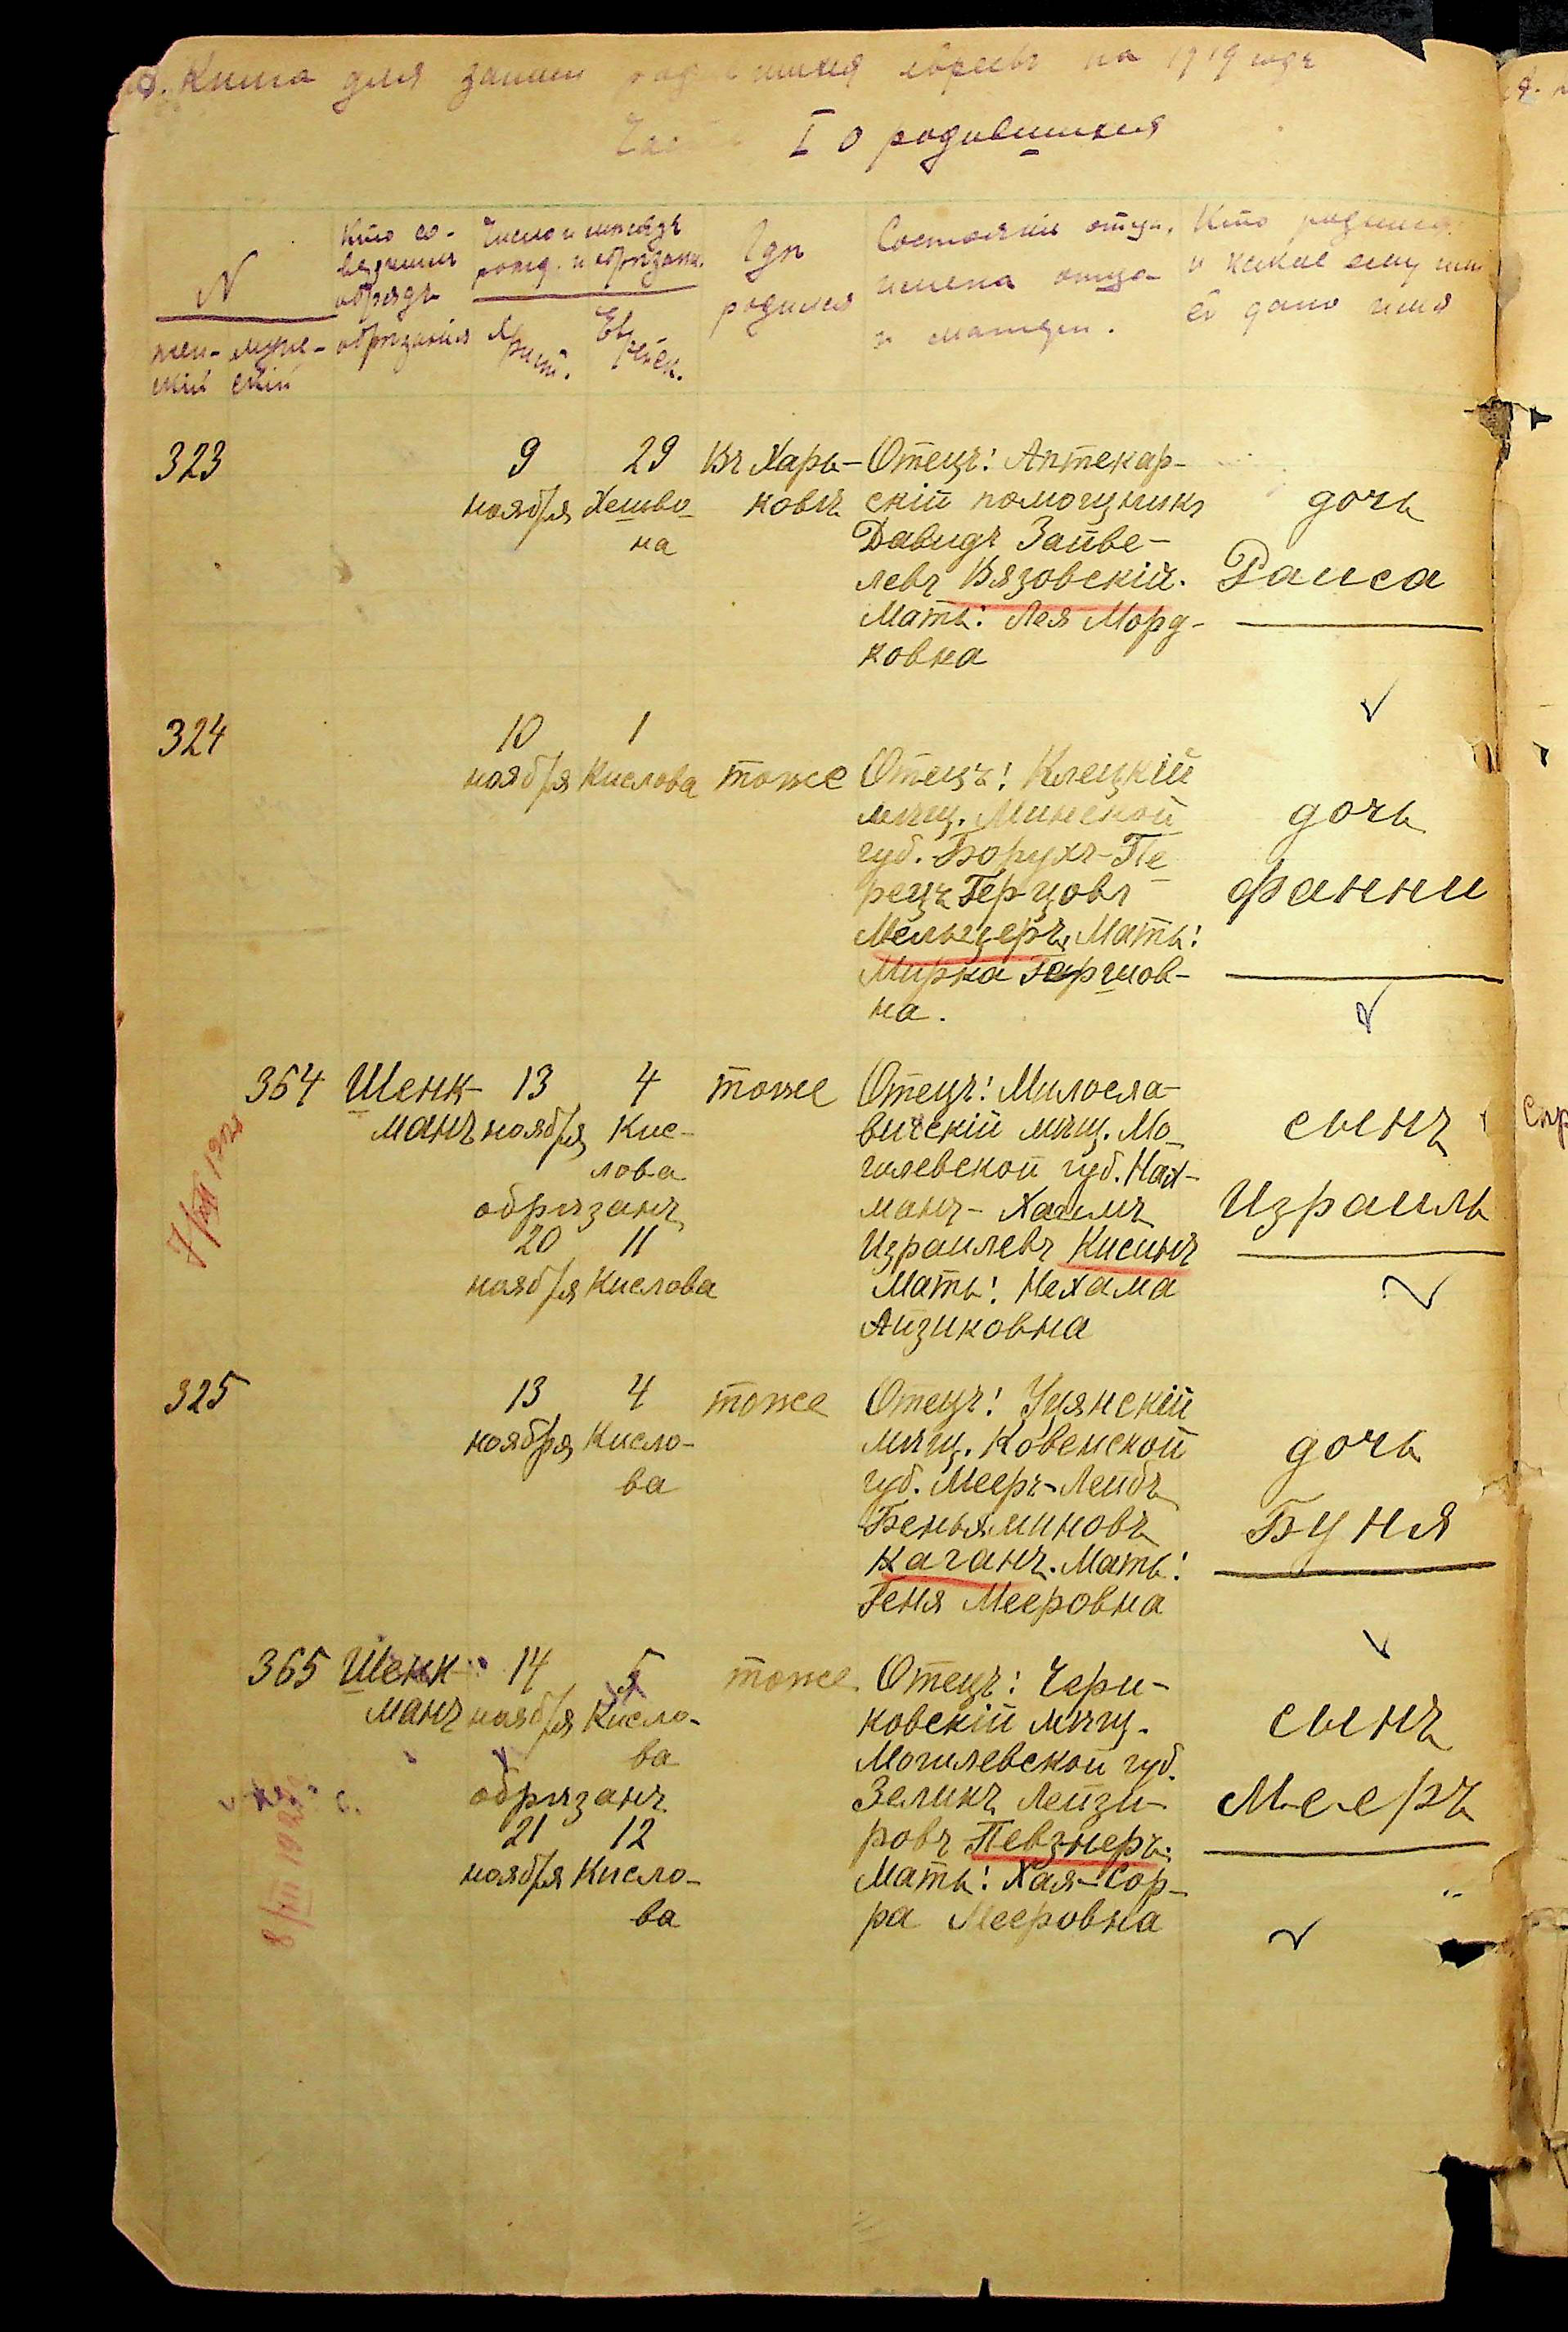 Книга для записи родившихся евреевъ на 1919 годъ
Часть I О родившихся
N
жен-
скій
муже-
скій
Кто со-
вершилъ
обрядъ
обрѣзанія
Число и мѣсяцъ
рожд. и обрѣзан.
Хр
ист.
Ев
рейск.
Гдѣ
родился
Состояніе отца,
имена отца
и матери.
Кто родился
и какое ему или
ей дано имя
323
9
ноября
29
Хешво-
на
Въ Харь-
ковѣ
Отецъ: Аптекар-
скій помощникъ
Давидъ Зайве-
левъ Вязовскій.
Мать: Лея Морд-
ковна
дочь
Раиса
324
10
ноября
1
Кислова
тоже
Отецъ: Клецкій
мѣщ. Минской
губ. Борухъ-Пе
рецъ Герцовъ
Мельцеръ. Мать:
Мирка Гершов-
на.
дочь
Фанни
364
Шенк-
манъ
13
ноября
4
Кис-
лова
обрѣзанъ
20
ноября
11
Кислова
тоже
Отецъ: Милосла-
вичскій мѣщ. Мо-
гилевской губ. Нах-
манъ-Хаимъ
Израилевъ Кисинъ
Мать: Нехама
Айзиковна
сынъ
Израиль
7/VIII 1920
325
13
ноября
4
Кисло-
ва
тоже
Отецъ: Уцянскій
мѣщ. Ковенской
губ. Мееръ-Лейбъ
Беньяминовъ
Каганъ. Мать:
Геня Мееровна
дочь
Буня
365
Шенк-
манъ
14
ноября
5
Кисло-
ва
обрѣзанъ
21
ноября
12
Кисло-
ва
тоже
Отецъ: Чери-
ковскій мѣщ.
Могилевской губ.
Зеликъ Лейзи-
ровъ Певзнеръ.
Мать: Хая-Сор-
ра Мееровна
сынъ
Мееръ